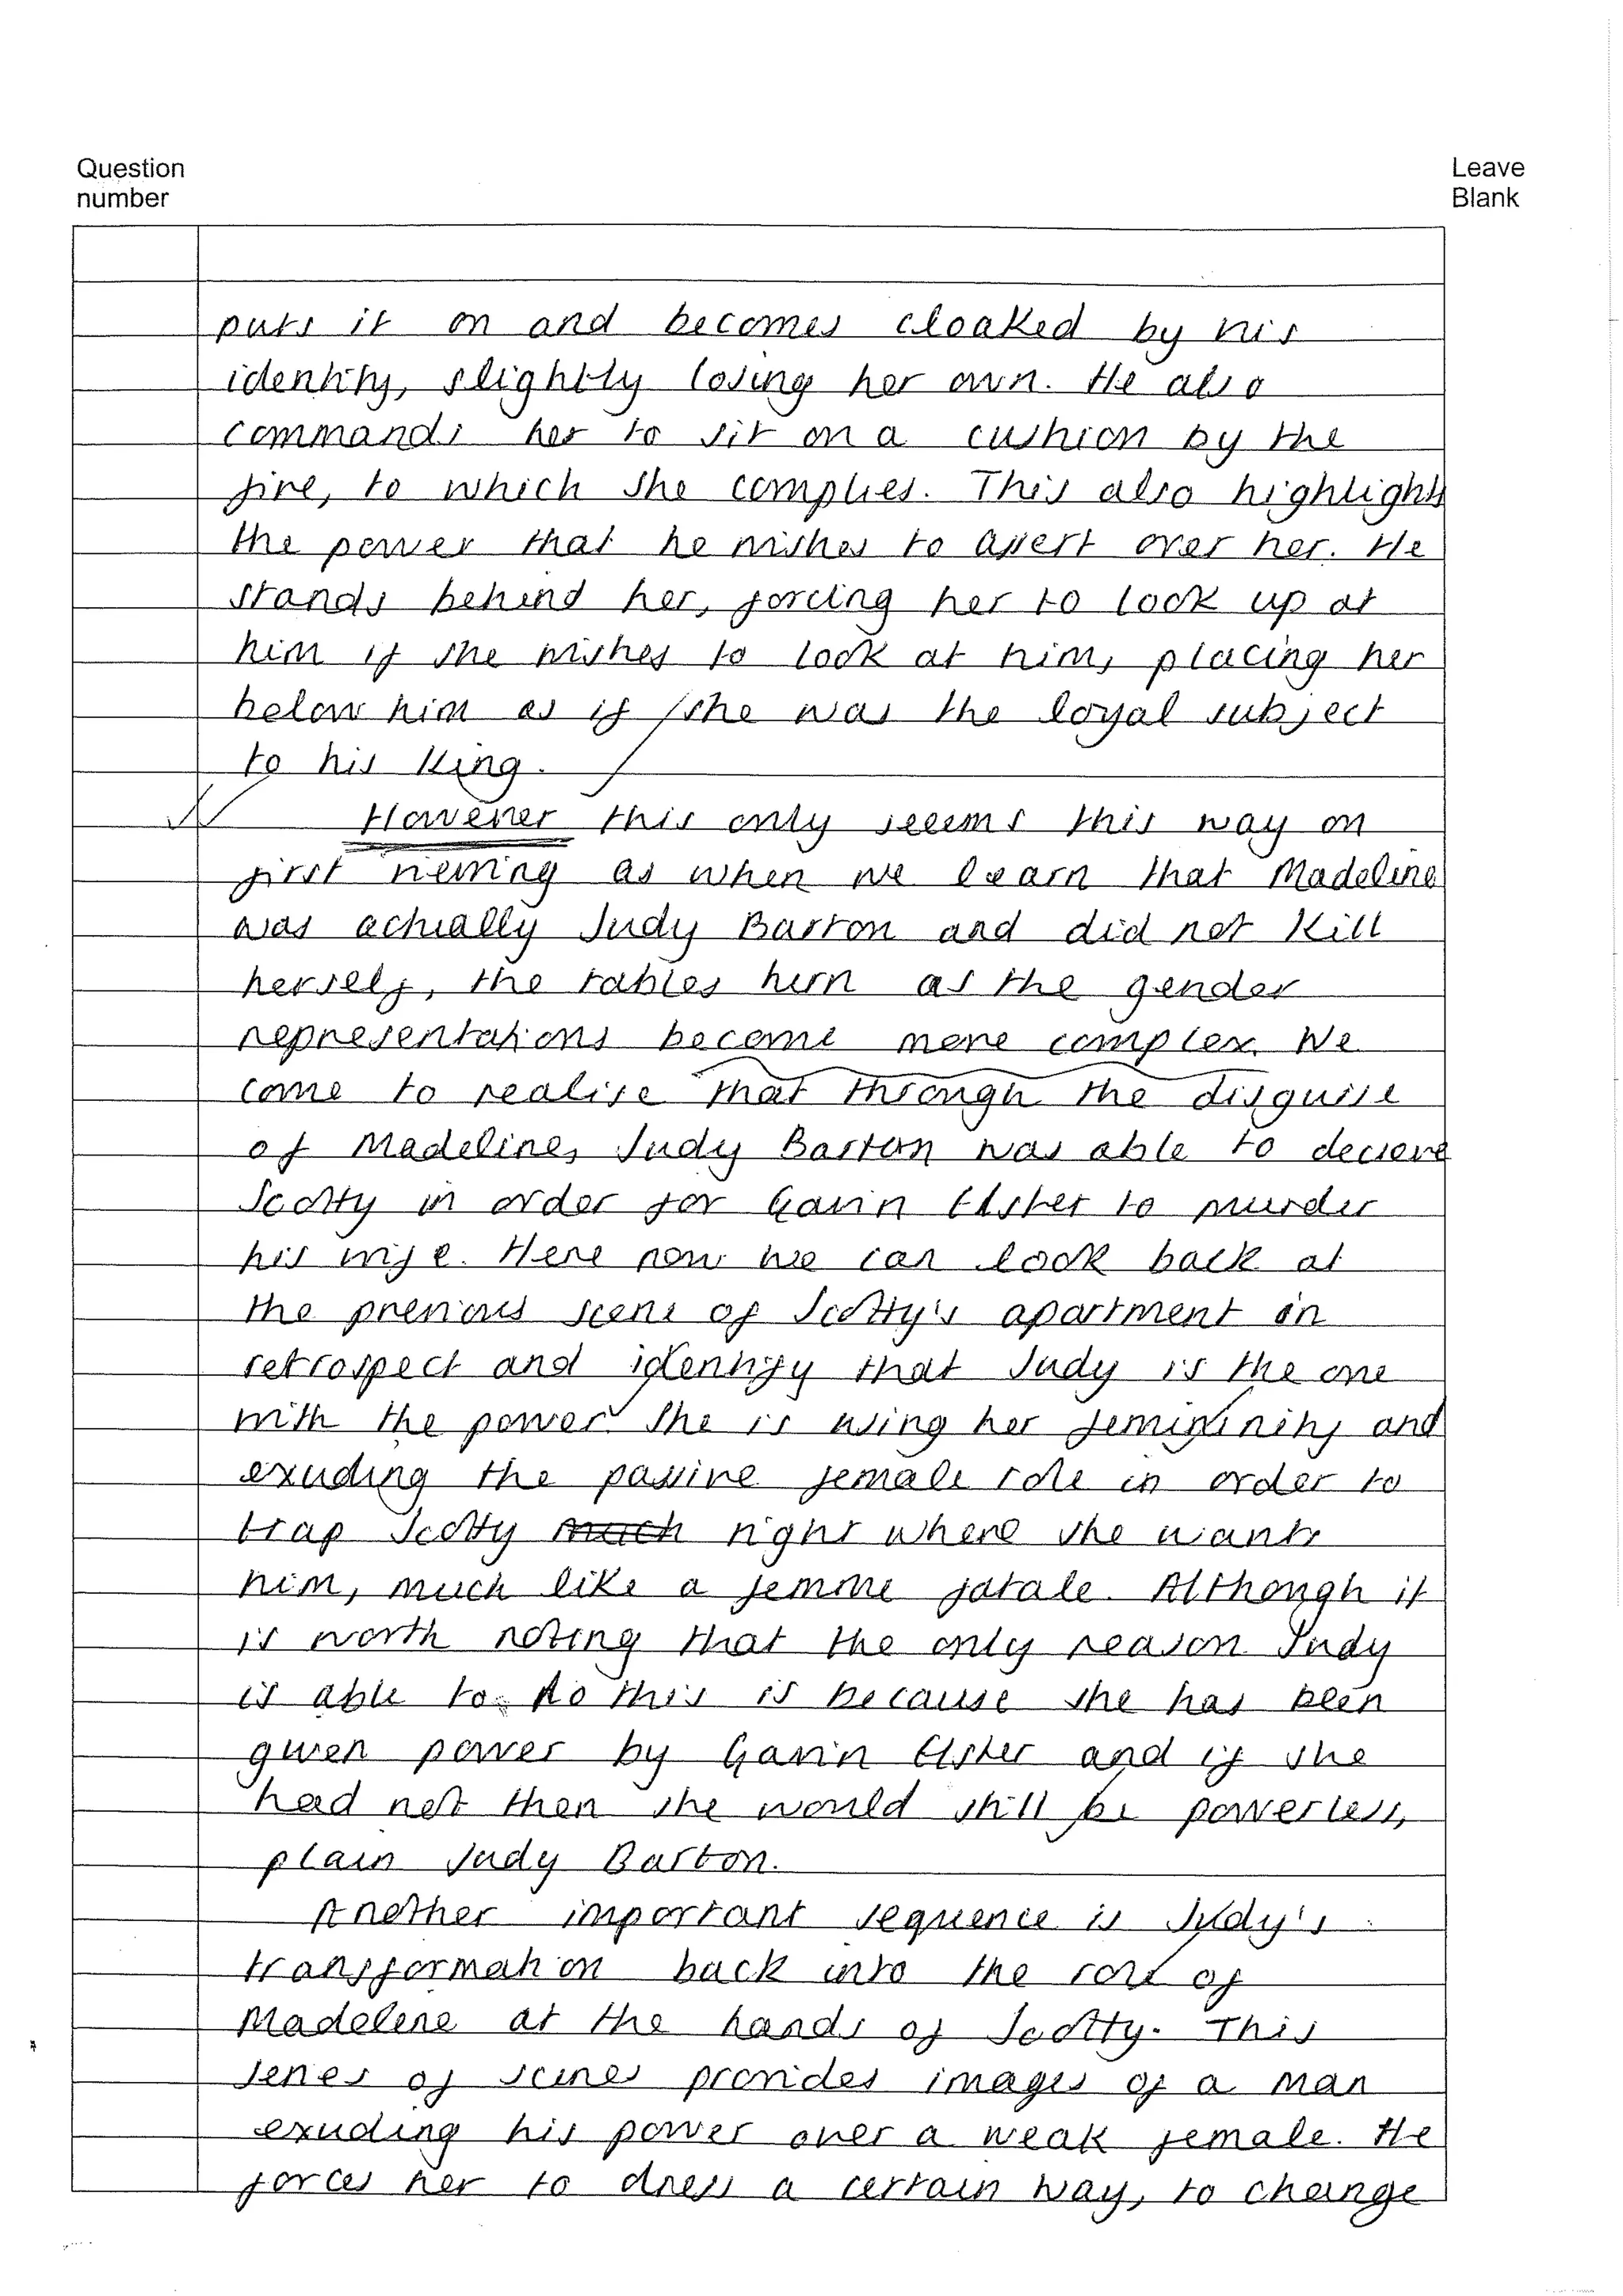 Question
number
Leave
Blank
puts it on and becomes cloaked by his
identity, slightly losing her own. He also
commands her to sit on a cushion by the
fire, to which she complies. This also highlights
the power that he wishes to assert over her. He
stands behind her, forcing her to look up at
him if she wishes to look at him, placing her
below him as if she was the loyal subject
to his King.
However this only seeems this way on
first viewing as when we learn that Madeline
was actually Judy Barton and did not kill
herself, the tables turn as the gender
representations become more complex. We
come to realise that through the disguise
of Madeline, Judy Barton was able to decieve
Scotty in order for Gavin Elster to murder
his wife. Here now we can look back at
the previous scene of Scotty's apartment in
retrospect and identify that Judy is the one
with the power. She is using her femininity and
exuding the passive female role in order to
trap Scotty much right where she wants
him, much like a femme fatale. Although it
is worth noting that the only reason Judy
is able to do this is because she has been
given power by Gavin Elster and if she
had not then she would still be powerless,
plain Judy Barton.
Another important sequence is Judy's
transformation back into the role of
Madeline at the hands of Scotty. This
series of scenes provides images of a man
exuding his power over a weak female. He
forces her to dress a certain way, to change